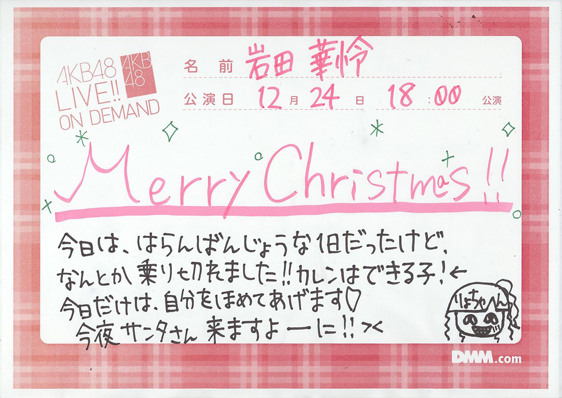 AKB48
LIVE!!
ON DEMAND
AKB
48
名前 岩田 華怜
公演日 12月24日 18:00公演
Merry Christmas!!
今日は、はらんばんじょうな1日だったけど、
なんとか乗り切れました!!カレンはできる子!←
今日だけは、自分をほめてあげます♡
今夜サンタさん来ますよーに!!><
りょちゃん
DMM.com